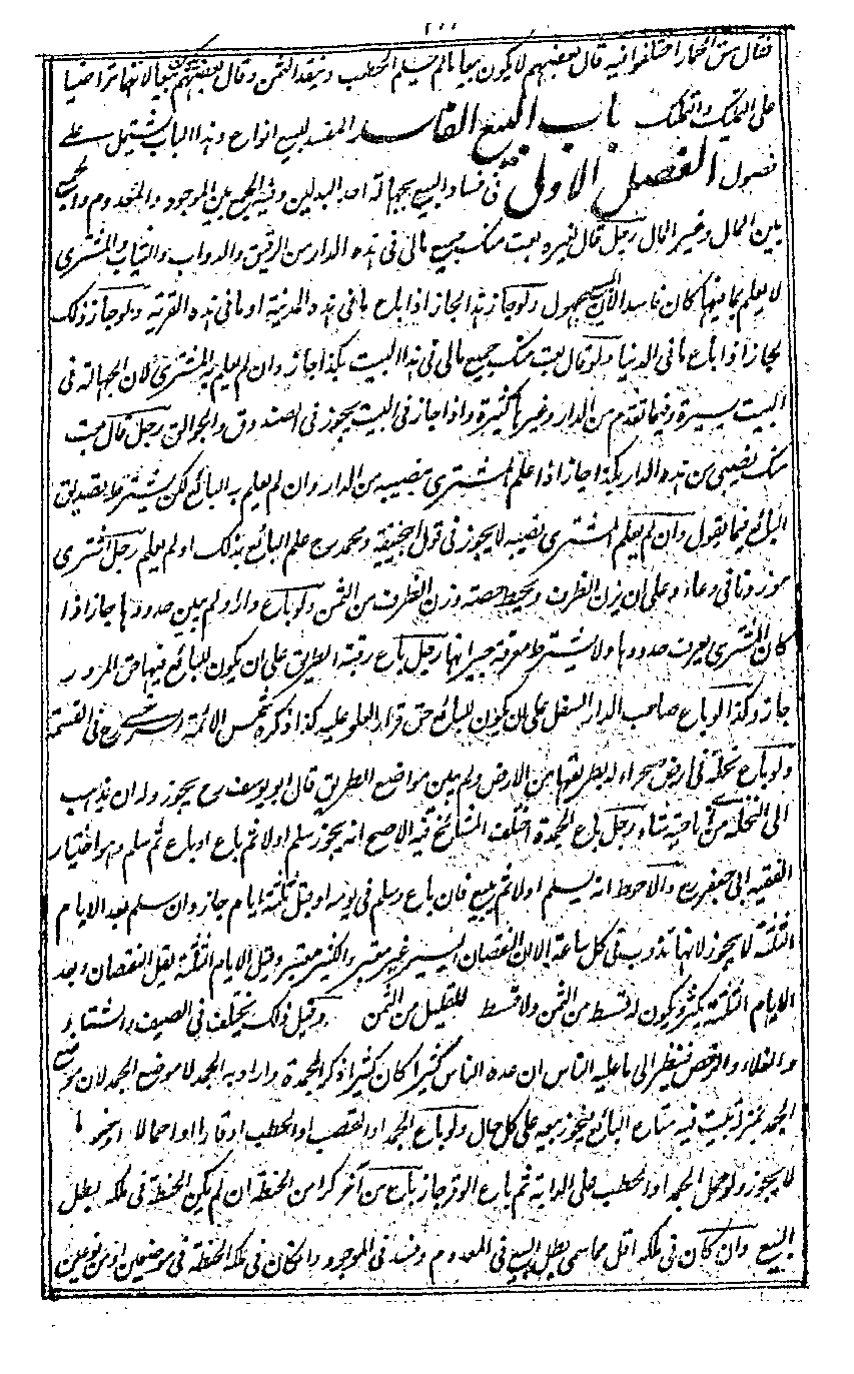 فقال مش الحمار اختلفوا فيه قال بعضهم لا يكون بيعا ما لم يسلم الحطب وينقد الثمن وقال بعضهم يكون بيعا لانهما تراضيا
على التمليك والتملك باب البيع الفاسد المفسد للبيع انواع وهذا الباب يشتمل على
فصول الفصل الاول فى فساد البيع بجهالة احد البدلين وفيه الجمع بين الموجود والمعدوم والجمع
بين المال وغير المال رجل قال لغيره بعت منك جميع مالى فى هذه الدار من الرقيق والدواب والثياب والمشترى
لا يعلم بما فيها كان فاسدا لان المبيع مجهول ولو جاز هذا لجاز اذا باع ما فى هذه المدينة او ما فى هذه القرية ولو جاز ذلك
لجاز اذا باع ما فى الدنيا ولو قال بعت منك جميع مالى فى هذا البيت بكذا جاز وان لم يعلم به المشترى لان الجهالة فى
البيت يسيرة وفيما تقدم من الدار وغيرها كثيرة واذا جاز فى البيت يجوز فى الصندوق والجوالق رجل قال بعت
منك نصيبى من هذه الدار بكذا جاز اذا علم المشترى بنصيبه من الدار وان لم يعلم به البائع لكن يشترط تصديق
البائع فيما يقول وان لم يعلم المشترى نصيبه لا يجوز فى قول ابيحنيفة ومحمد رح علم البائع بذلك او لم يعلم رجل اشترى
موزونا فى وعاء على ان يزن الظرف ويحط حصة وزن الظرف من الثمن ولو باع دارا ولم يبين حدودها جاز اذا
كان المشترى يعرف حدودها ولا يشترط معرفة جيرانها رجل باع رقبة الطريق على ان يكون للبائع فيها حق المرور
جاز وكذا لو باع صاحب الدار السفل على ان يكون للبائع حق قرار العلو عليه كذا ذكره شمس الائمة السرخسى رح فى القسمة
ولو باع نخلة فى ارض صحراء له بطريقها من الارض ولم يبين مواضع الطريق قال ابو يوسف رح يجوز وله ان يذهب
الى النخلة من اى ناحية شاء رجل باع الجمدة اختلف المشائخ فيه الاصح انه يجوز سلم اولا ثم باع او باع ثم سلم وهو اختيار
الفقيه ابى جعفر رح والاحوط انه يسلم اولا ثم يبيع فان باع وسلم فى يومه او قبل ثلثة ايام جاز وان سلم بعد الايام
الثلثة لا يجوز لانها تذوب فى كل ساعة الا ان النقصان اليسير غير معتبر والكثير معتبر وقبل الايام الثلثة يقل النقصان وبعد
الايام الثلثة يكثر ويكون له قسط من الثمن ولا قسط للقليل من الثمن وقيل ذلك يختلف فى الصيف والشتاء
والغلاء والرخص فينظر الى ما عليه الناس ان عده الناس كثيرا كان كثيرا ذكر الجمدة واراد به الجمد لا موضع الجمد لان موضع
الجمد بمنزلة بيت فيه متاع البائع يجوز بيعه على كل حال ولو باع الجمد او القصب او الحطب اوقارا او احمالا او نحوها
لا يجوز ولو حمل الجمد او الحطب على الدابة ثم باع الوقر جاز باع من آخر كرا من الحنطة ان لم يكن الحنطة فى ملكه بطل
البيع وان كان فى ملكه اقل مما سمى بطل البيع فى المعدوم وفسد فى الموجود وان كان فى ملكه الحنطة فى موضعين او من نوعين